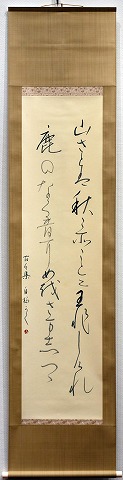 山さとは秋こそことにわひしけれ
鹿のなく音にめをさましつゝ
古今集